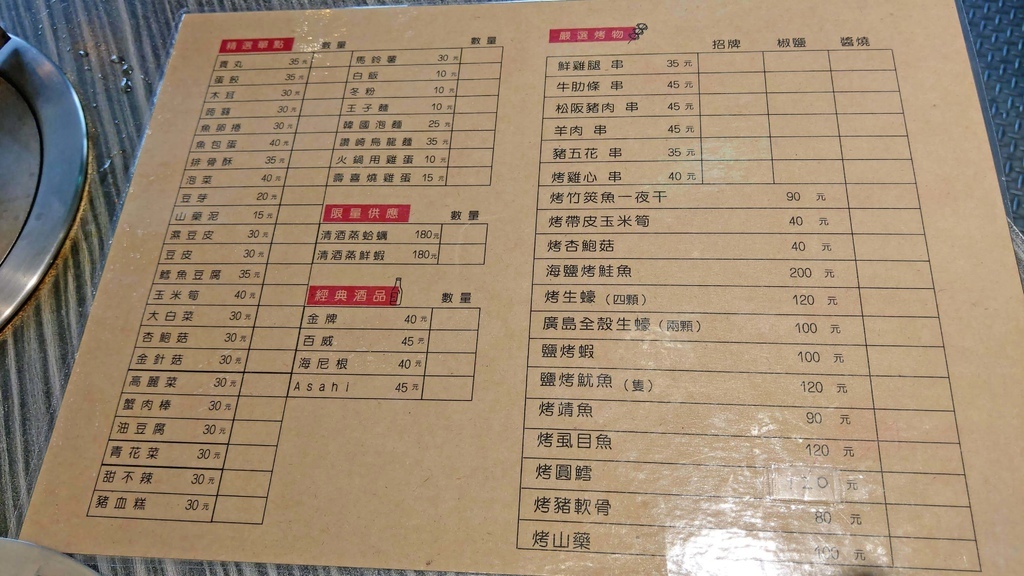 精選單點 數量
貢丸 35元
蛋餃 35元
木耳 30元
蒟蒻 30元
魚卵捲 30元
魚包蛋 40元
排骨酥 35元
泡菜 40元
豆芽 20元
山藥泥 15元
濕豆皮 30元
豆皮 30元
鱈魚豆腐 35元
玉米筍 40元
大白菜 30元
杏鮑菇 30元
金針菇 30元
高麗菜 30元
蟹肉棒 30元
油豆腐 30元
青花菜 30元
甜不辣 30元
豬血糕 30元
數量
馬鈴薯 30元
白飯 10元
冬粉 10元
王子麵 10元
韓國泡麵 25元
讚崎烏龍麵 35元
火鍋用雞蛋 10元
壽喜燒雞蛋 15元
限量供應 數量
清酒蒸蛤蠣 180元
清酒蒸鮮蝦 180元
經典酒品 數量
金牌 40元
百威 45元
海尼根 40元
Asahi 45元
嚴選烤物 招牌 椒鹽 醬燒
鮮雞腿 串 35元
牛肋條 串 45元
松阪豬肉 串 45元
羊肉 串 45元
豬五花 串 35元
烤雞心 串 40元
烤竹筴魚一夜干 90元
烤帶皮玉米筍 40元
烤杏鮑菇 40元
海鹽烤鮭魚 200元
烤生蠔(四顆) 120元
廣島全殼生蠔(兩顆) 100元
鹽烤蝦 100元
鹽烤魷魚(隻) 120元
烤鯖魚 90元
烤虱目魚 120元
烤圓鱈 元
烤豬軟骨 80元
烤山藥 100元